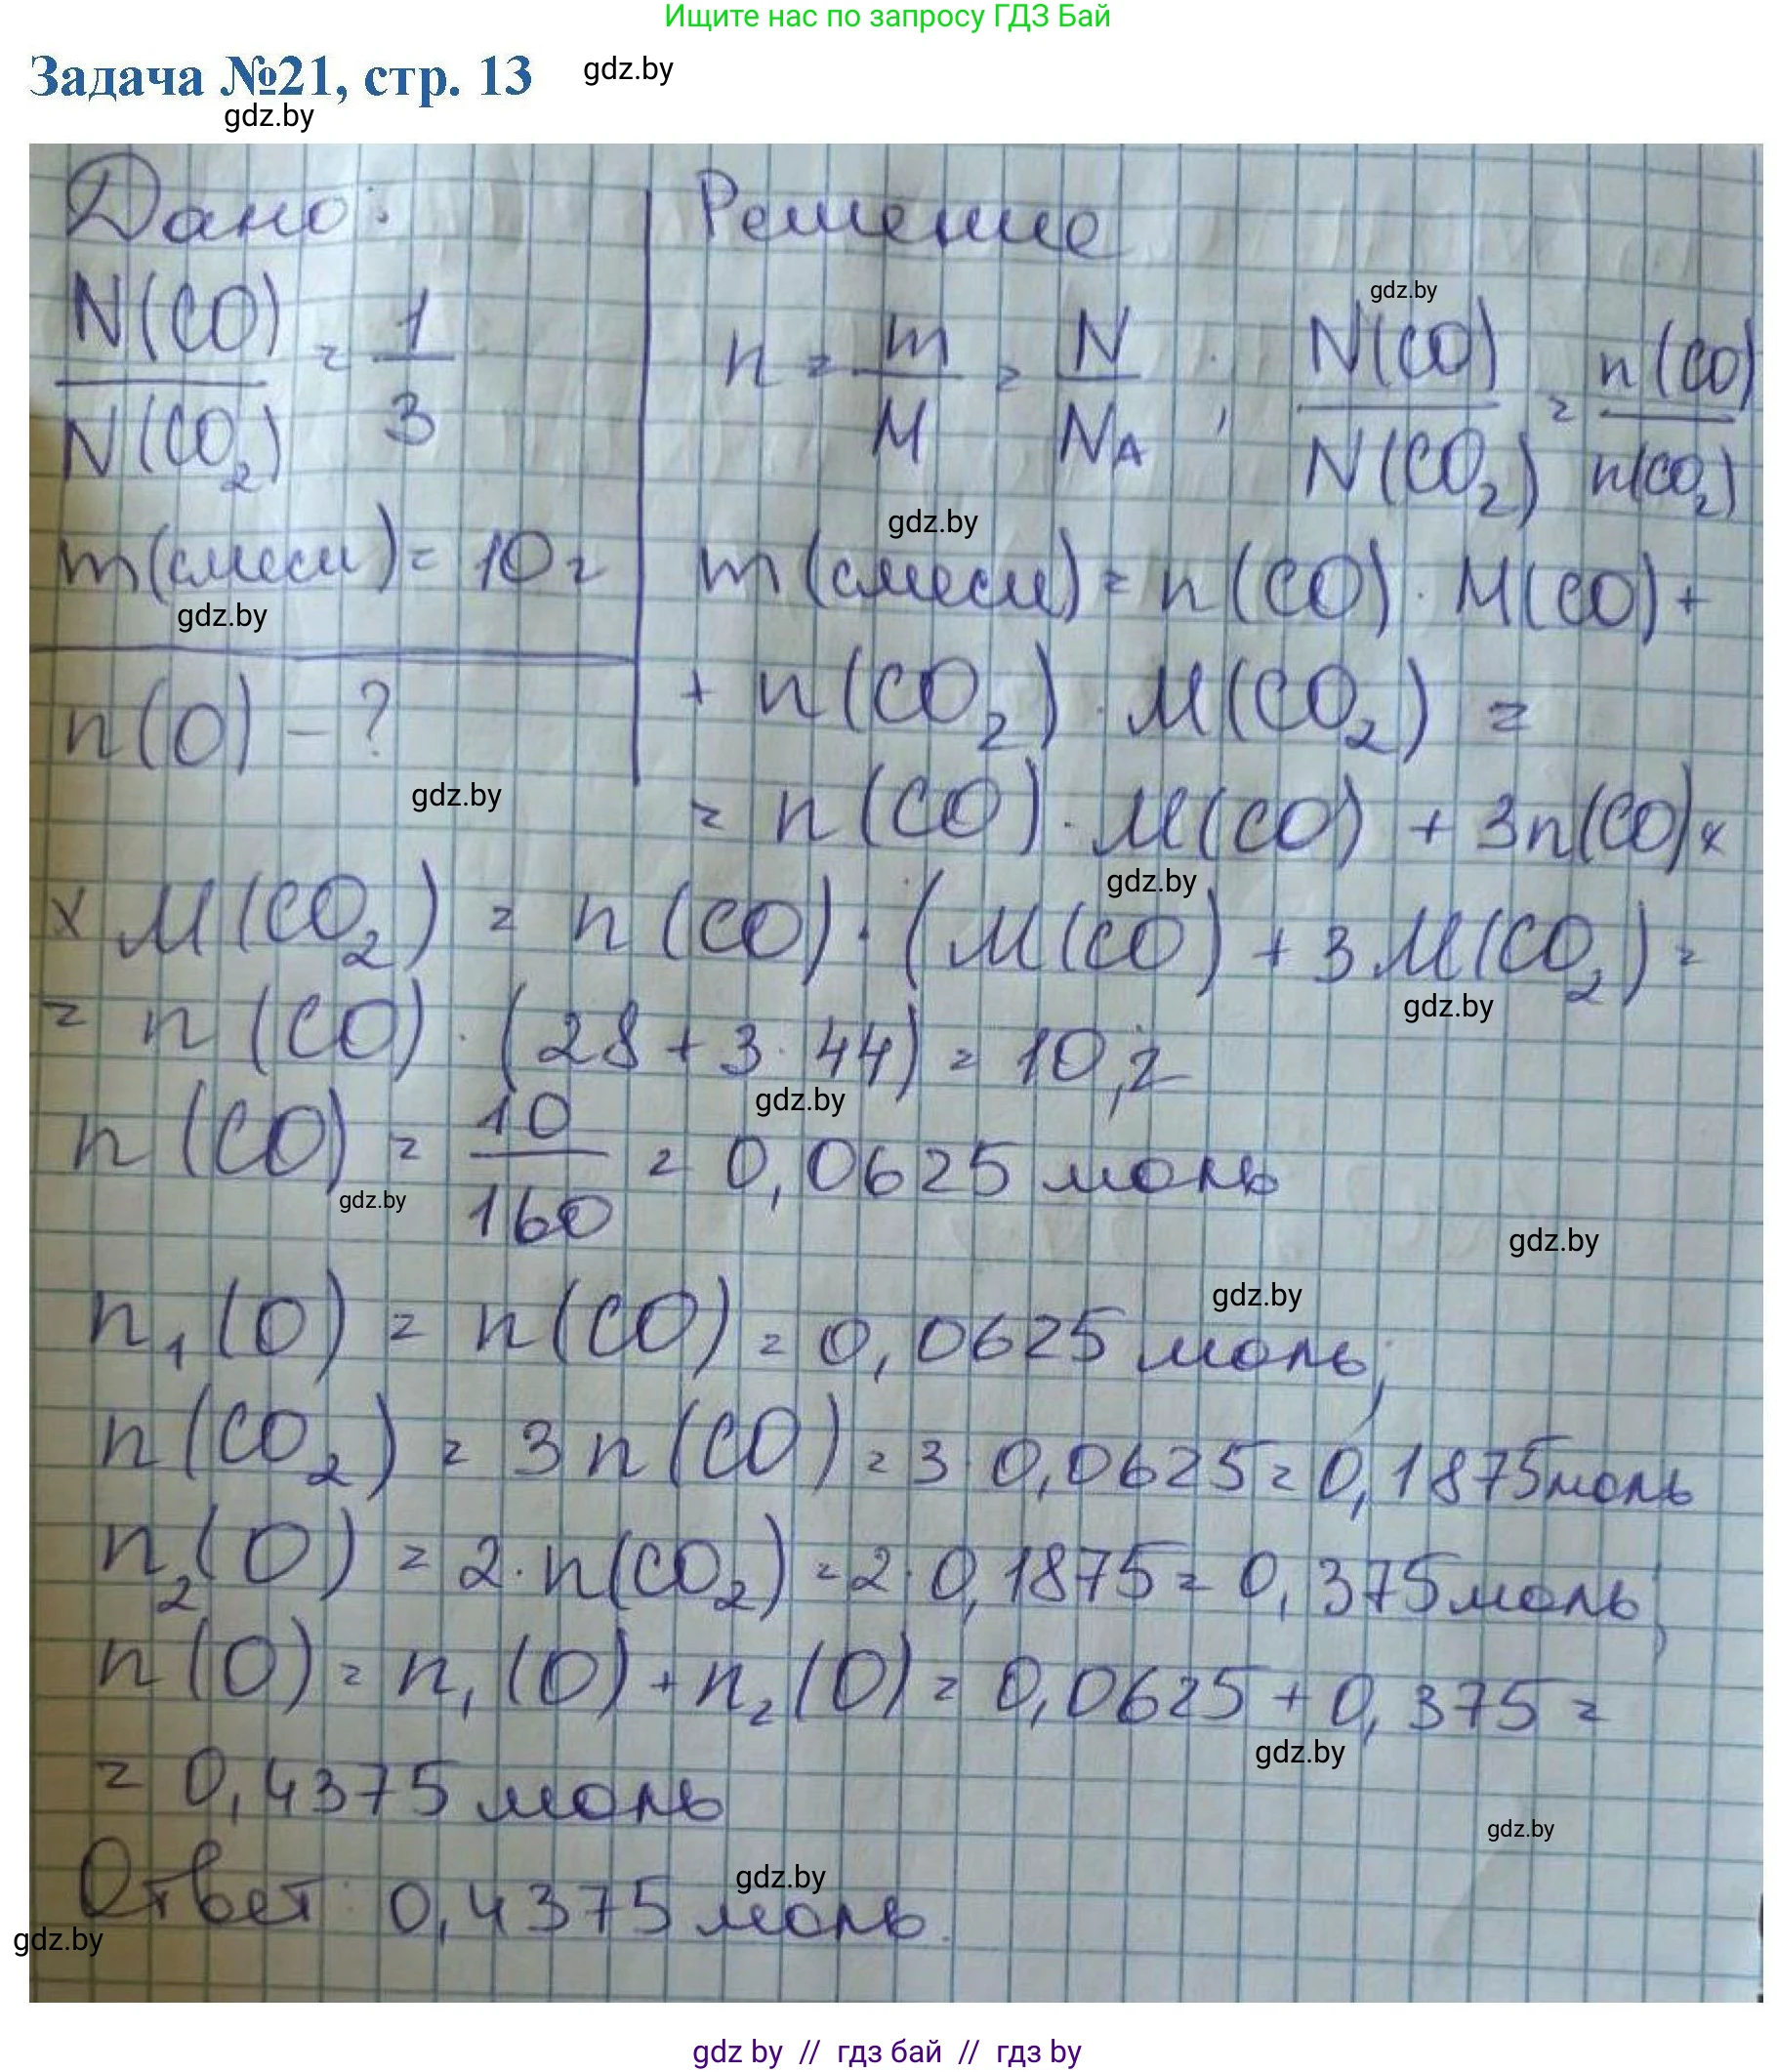 Ищите нас по запросу ГДЗ Бай
Задача №21, стр. 13 gdz.by
gdz.by
Дано:
N(CO)/N(CO₂) = 1/3
m(смеси) = 10 г
gdz.by
n(O) – ?
gdz.by
Решение
gdz.by
n = m/M = N/NA ; N(CO)/N(CO₂) = n(CO)/n(CO₂)
gdz.by
m(смеси) = n(CO) · M(CO) +
+ n(CO₂) · M(CO₂) =
= n(CO) · M(CO) + 3n(CO) ×
gdz.by
× M(CO₂) = n(CO) · (M(CO) + 3M(CO₂) =
gdz.by
= n(CO) · (28 + 3 · 44) = 10, г
gdz.by
n(CO) = 10/160 = 0,0625 моль
gdz.by
gdz.by
gdz.by
n₁(O) = n(CO) = 0,0625 моль;
n(CO₂) = 3n(CO) = 3 · 0,0625 = 0,1875 моль
n₂(O) = 2 · n(CO₂) = 2 · 0,1875 = 0,375 моль;
n(O) = n₁(O) + n₂(O) = 0,0625 + 0,375 =
gdz.by
= 0,4375 моль
gdz.by
gdz.by
Ответ: 0,4375 моль.
gdz.by
gdz.by // гдз бай // гдз by